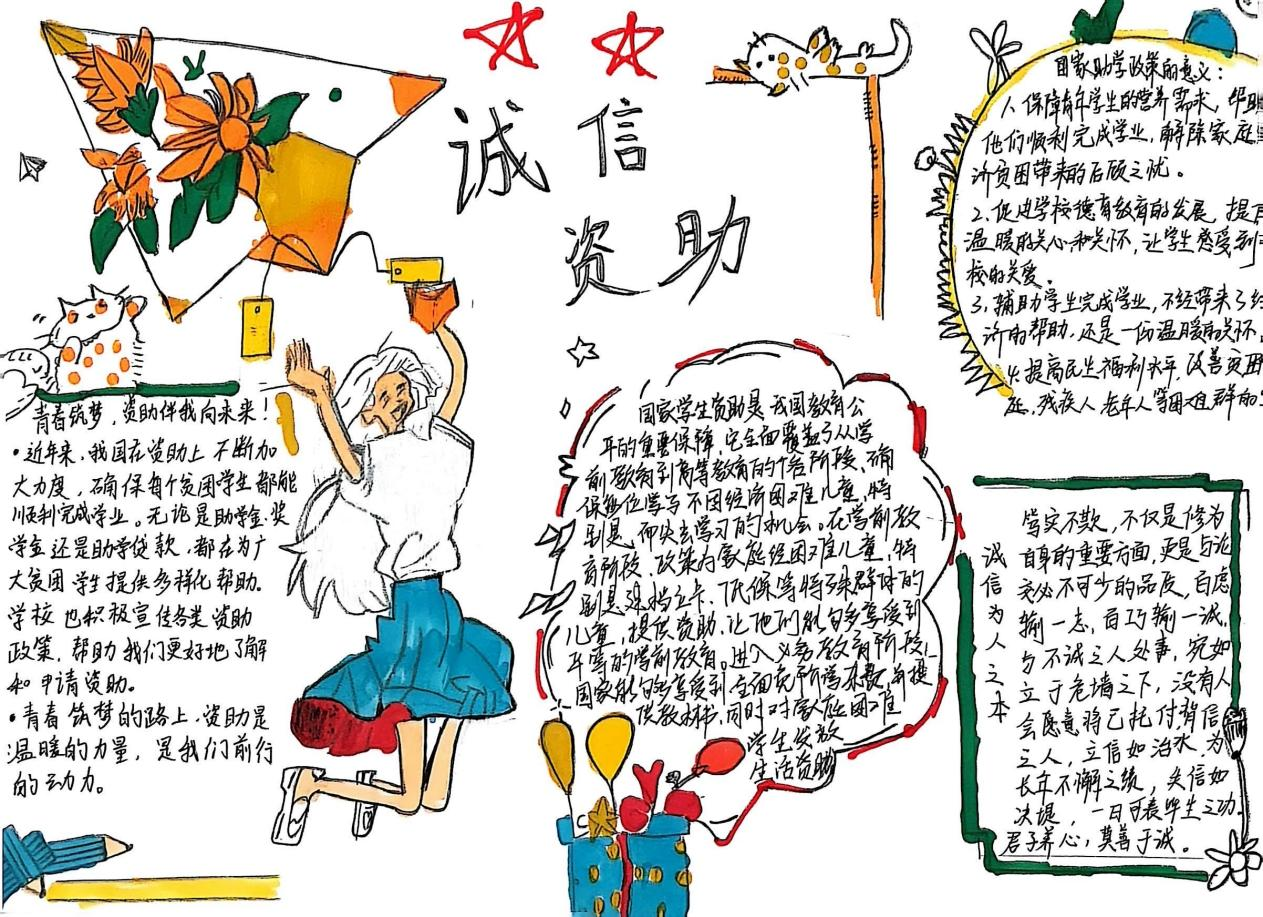 诚信
资助
青春筑梦，资助伴我向未来！
·近年来，我国在资助上不断加
大力度，确保每个贫困学生都能
顺利完成学业。无论是助学金、奖
学金还是助学贷款，都在为广
大贫困学生提供多样化帮助。
学校也积极宣传各类资助
政策，帮助我们更好地了解
和申请资助。
·青春筑梦的路上，资助是
温暖的力量，是我们前行
的动力。
国家学生资助是我国教育公
平的重要保障，它全面覆盖了从学
前教育到高等教育的个各阶段，确
保每位学子不因经济困难儿童，特
别是而失去学习的机会。在学前教
育阶段，政策为家庭经困难儿童，特
别是建档立卡、低保等特殊群体的
儿童，提供资助，让他们能够多享受到
平等的学前教育。进入义务教育阶段，
国家能够享受到全面免除学杂费，并提
供教科书，同时对家庭困难
学生发放
生活资助
国家助学政策的意义：
1、保障青年学生的营养需求，帮助
他们顺利完成学业，解除家庭
济贫困带来的后顾之忧。
2、促进学校德育教育的发展，提
温暖的关心和关怀，让学生感受到
校的关爱。
3、辅助学生完成学业，不经带来了经
济的帮助，还是一份温暖的关怀。
4、提高民生福利水平，改善贫困
残疾人老年人等困难群的
诚信为人之本
笃实不欺，不仅是修为
自身的重要方面，更是与论
交必不可少的品质，百虑
输一志，百巧输一诚。
与不诚之人处事，宛如
立于危墙之下，没有人
会愿意将己托付背信
之人，立信如治水，为
长年不懈之绩，失信如
决堤，一日可丧毕生之功。
君子养心，莫善于诚。